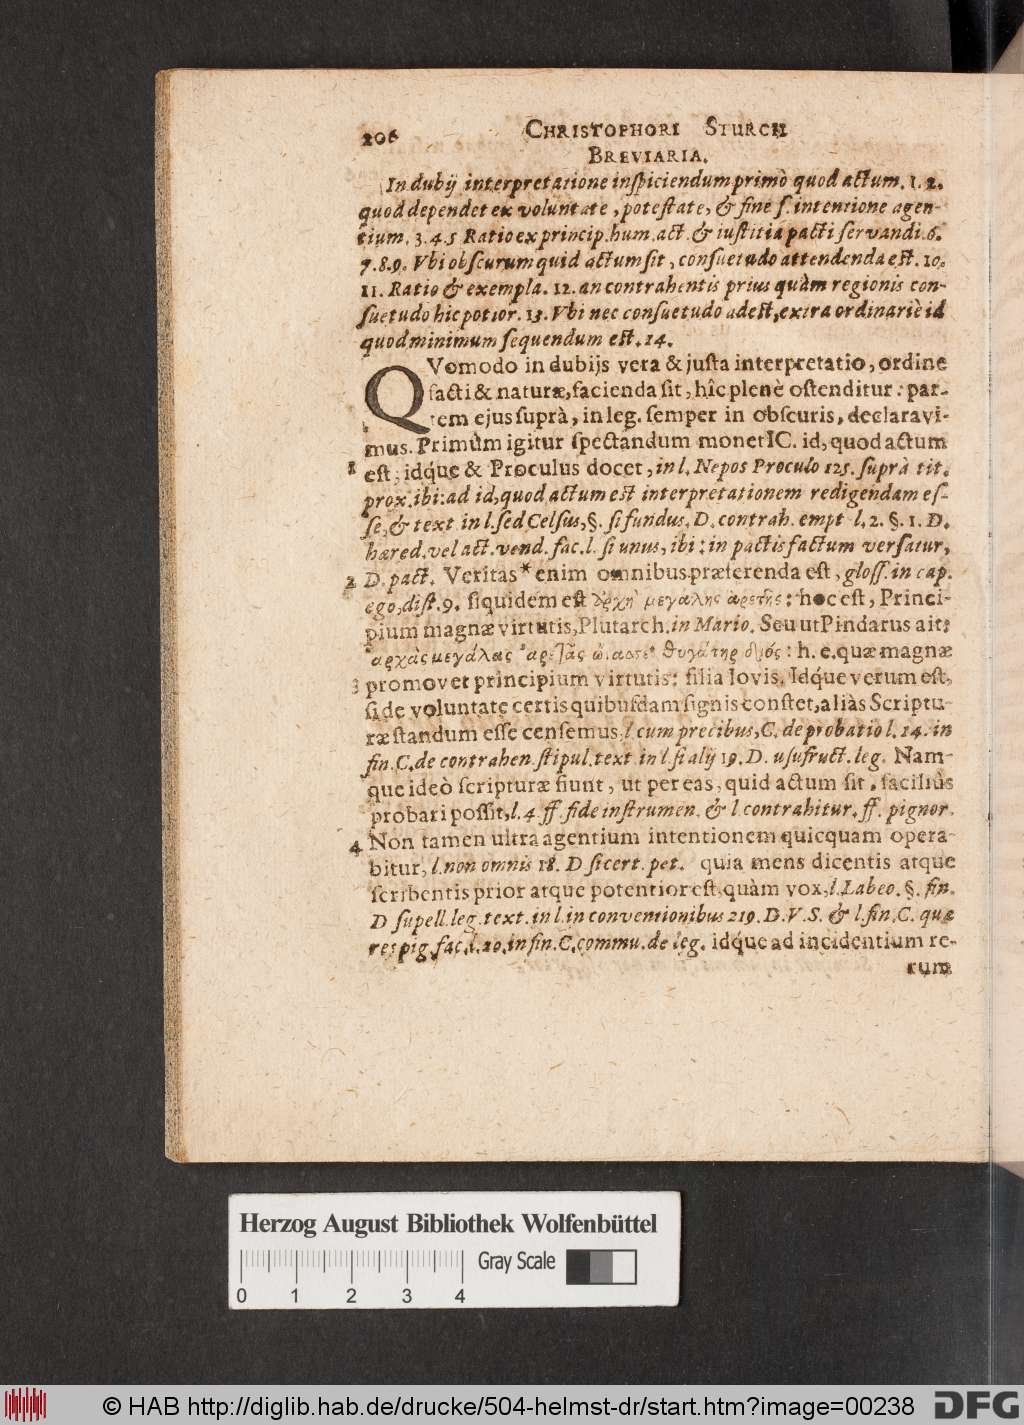 206 CHRISTOPHORI STURCII
BREVIARIA.
In dubij interpretatione inſpiciendum primò quod actum. 1. 2.
quod dependet ex voluntate, poteſtate, & fine ſ. intentione agen-
tium. 3. 4. 5 Ratio ex princip. hum. act. & iuſtitia pacti ſervandi. 6.
7. 8. 9. Vbi obſcurum quid actum ſit, conſuetudo attendenda eſt. 10.
11. Ratio & exempla. 12. an contrahentis prius quàm regionis con-
ſuetudo hic potior. 13. Vbi nec conſuetudo adeſt, extra ordinariè id
quod minimum ſequendum eſt. 14.
QVomodo in dubijs vera & juſta interpretatio, ordine
facti & naturæ, facienda ſit, hîc plenè oſtenditur: par-
tem ejus ſuprà, in leg. ſemper in obſcuris, declaravi-
mus. Primùm igitur ſpectandum monet IC. id, quod actum
1 eſt; idq́ue & Proculus docet, in l. Nepos Proculo 125. ſuprà tit.
prox. ibi: ad id, quod actum eſt interpretationem redigendam eſ-
ſe, & text. in l. ſed Celſus, §. ſi fundus, D. contrah. empt l. 2. §. 1. D.
hæred. vel act. vend. fac. l. ſi unus, ibi: in pactis factum verſatur,
2 D. pact. Veritas* enim omnibus præferenda eſt, gloſſ. in cap.
ego, diſt. 9. ſiquidem eſt ἀρχὴ μεγάλης ἀρετῆς: hoc eſt, Princi-
pium magnæ virtutis, Plutarch. in Mario. Seu ut Pindarus ait:
ἀρχὰς μεγάλας θυγάτηρ διός: h. e. quæ magnæ
3 promovet principium virtutis: filia Iovis. Idq́ue verum eſt,
ſi de voluntate certis quibuſdam ſignis conſtet, aliàs Scriptu-
ræ ſtandum eſſe cenſemus, l. cum precibus, C. de probatio l. 14. in
fin. C. de contrahen. ſtipul. text. in l. ſi alij 19. D. uſufruct. leg. Nam-
que ideò ſcripturæ fiunt, ut per eas, quid actum ſit, facilius
probari poſſit, l. 4. ff. fide inſtrumen. & l. contrahitur. ff. pignor.
4 Non tamen ultra agentium intentionem quicquam opera-
bitur, l. non omnis 18. D ſi cert. pet. quia mens dicentis atque
ſcribentis prior atque potentior eſt, quàm vox, l. Labeo. §. fin.
D ſupell. leg. text. in l. in conventionibus 219. D. V. S. & l. fin. C. quæ
res pig. fac. l. 20. in fin. C. commu. de leg. idq́ue ad incidentium re-
rum
Herzog August Bibliothek Wolfenbüttel
Gray Scale
0 1 2 3 4
© HAB http://diglib.hab.de/drucke/504-helmst-dr/start.htm?image=00238
DFG